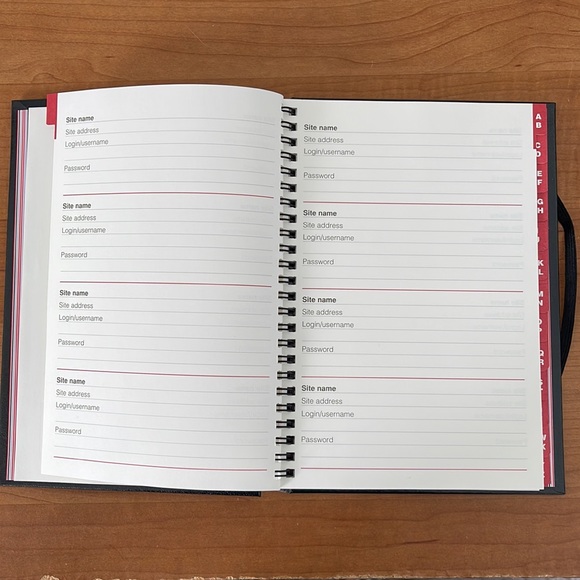 Site name
Site address
Login/username
Password
Site name
Site address
Login/username
Password
Site name
Site address
Login/username
Password
Site name
Site address
Login/username
Password
Site name
Site address
Login/username
Password
Site name
Site address
Login/username
Password
Site name
Site address
Login/username
Password
Site name
Site address
Login/username
Password
A
B
C
D
E
F
G
H
J
K
L
M
N